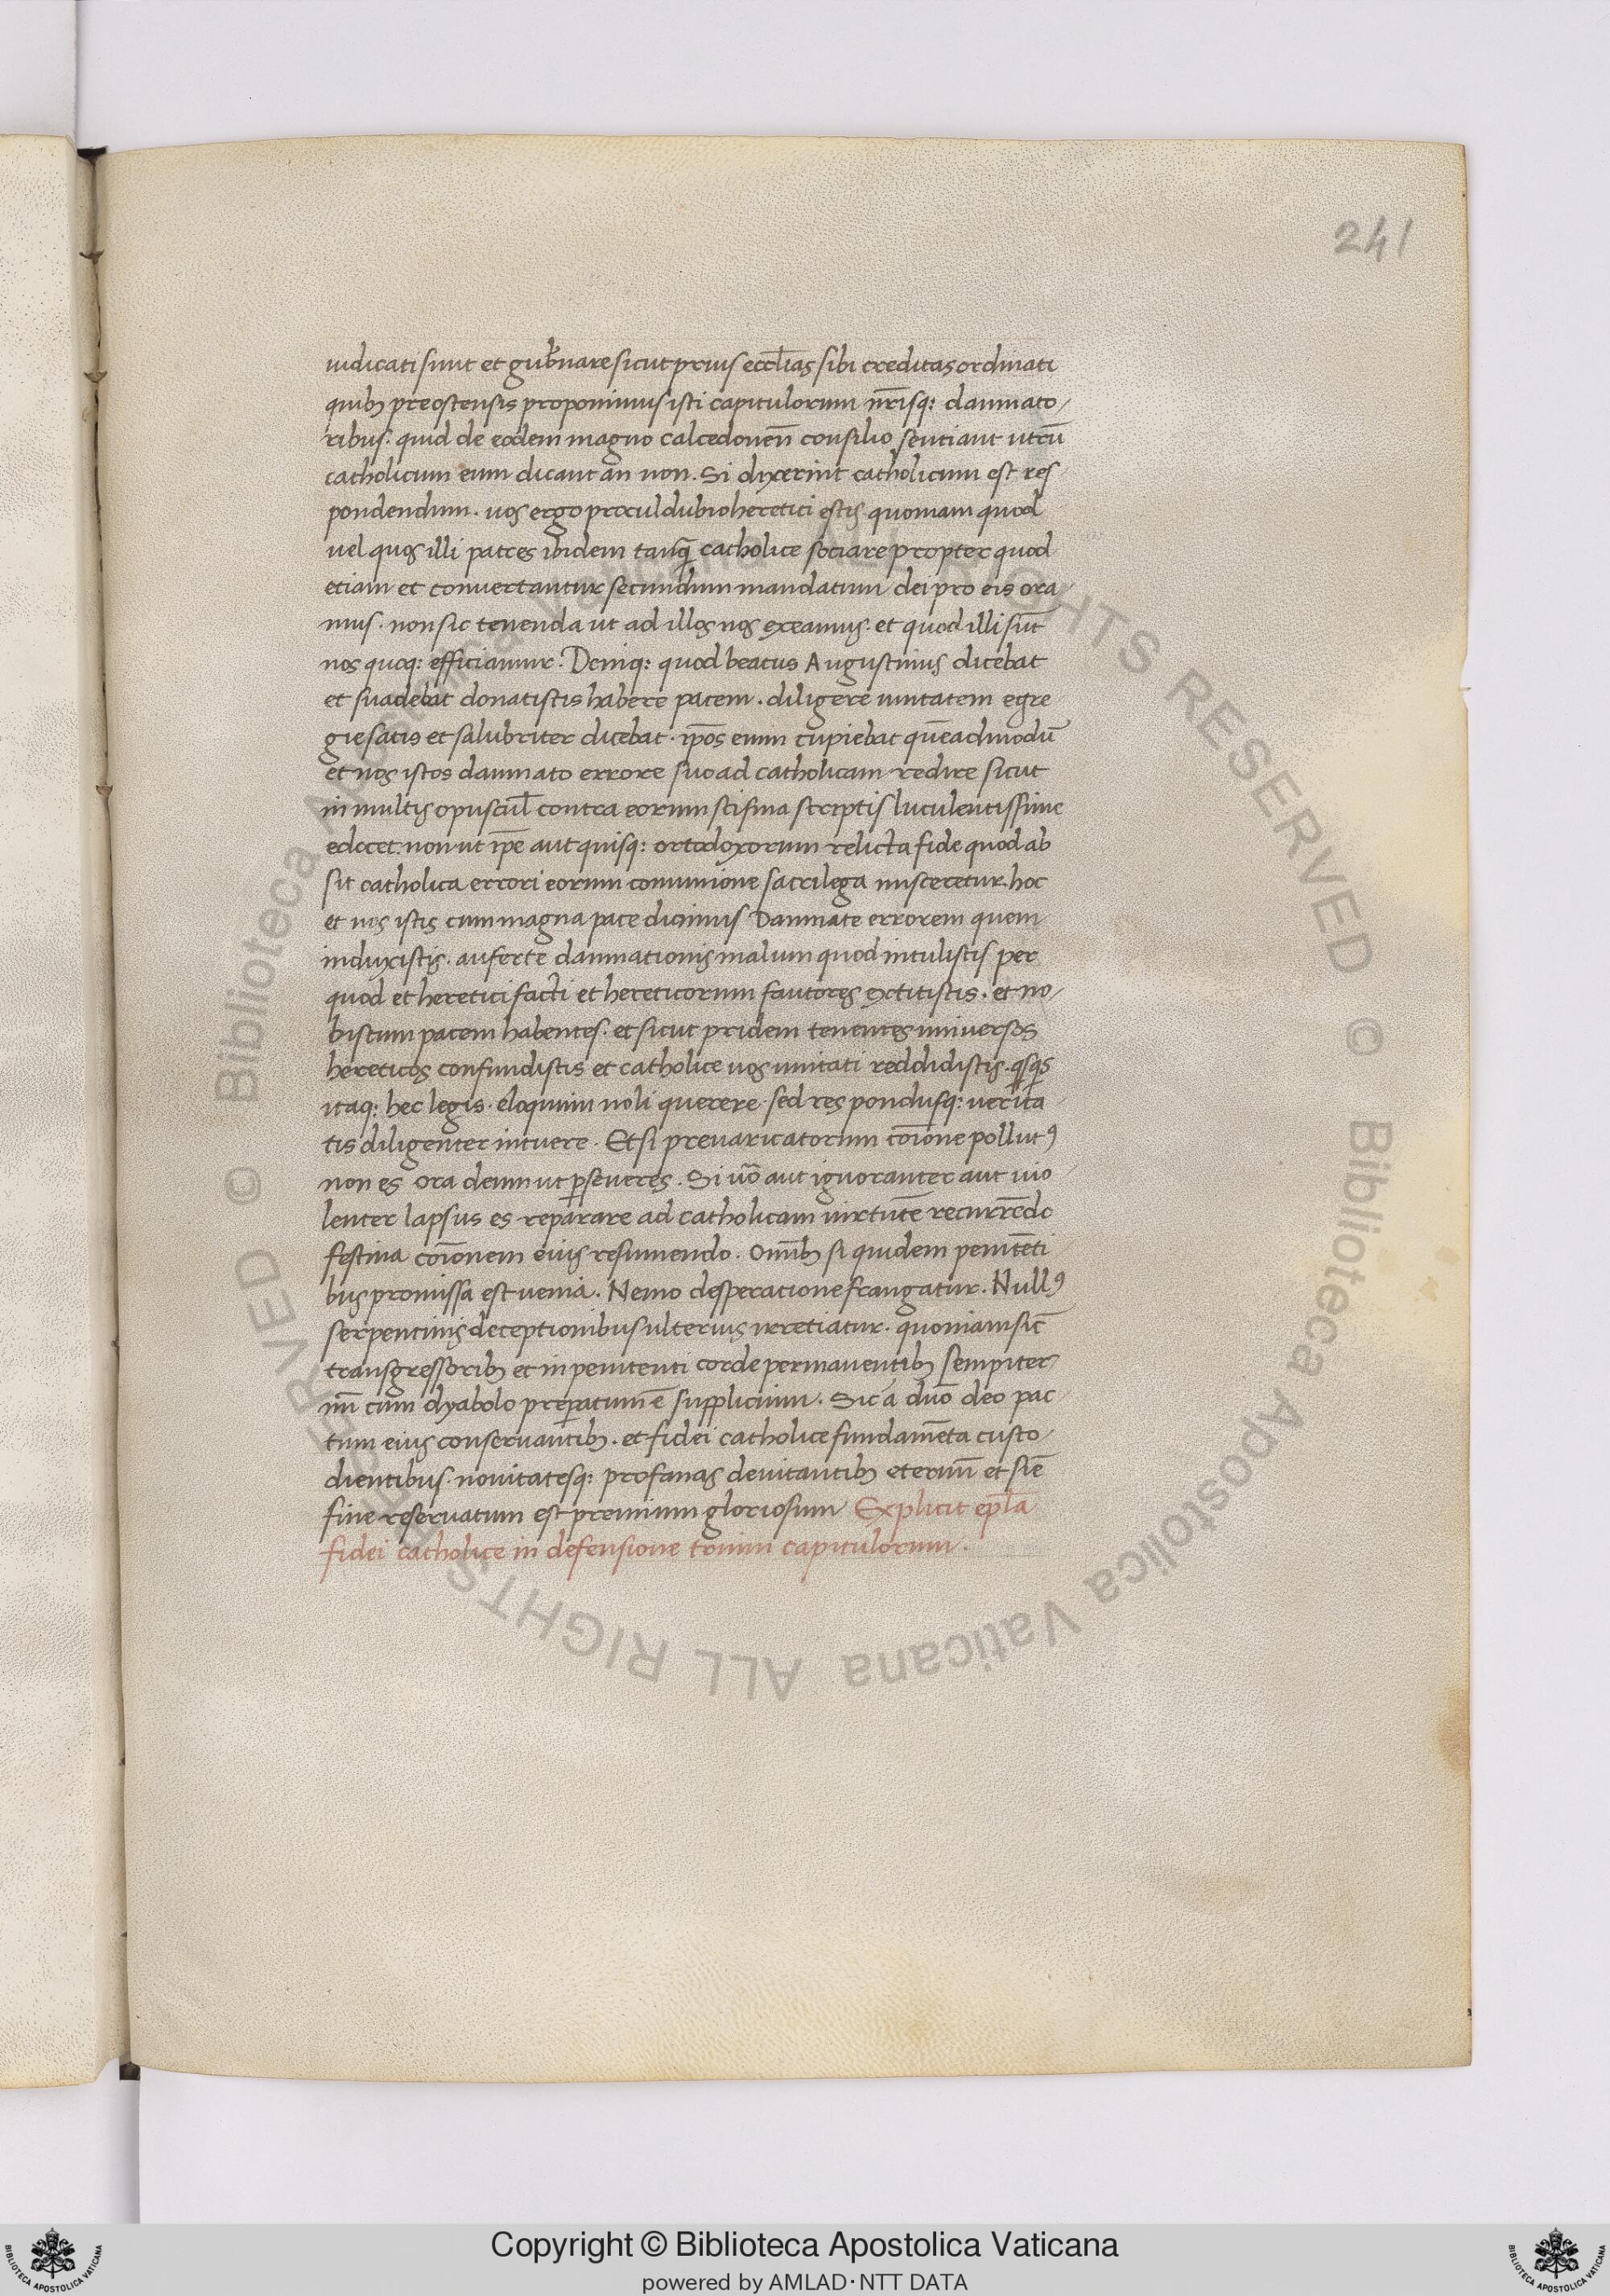 241
iudicati sunt et gub̄nare sicut prius eccl̄ias sibi creditas ordinati
quibȝ preostensis proponimus isti capitulorum nr̄isq: damnato/
ribus. quid de eodem magno calcedonen̄ consilio sentiant utrū
catholicum eum dicant an non. Si dixerint catholicum est res
pondendum. uos ergo procul dubio heretici estis quoniam quod
uel quos illi patres ibidem tanq̄ catholice sociare propter quod
etiam et convertantur secundum mandatum dei pro eis ora
mus. non sic tenenda ut ad illos nos exeamus. et quod illi sūt
nos quoq: efficiamur. Deniq: quod beatus Augustinus dicebat
et suadebat donatistis habere pacem. diligere unitatem egre
gie satis et salubriter dicebat. ip̄os enim cupiebat quēadmodū
et nos istos damnato errore suo ad catholicam redire sicut
in multis opuscul̄ contra eorum scisma scriptis luculentissime
edocet. non ut ip̄e aut quisq: ortodoxorum relicta fide quod ab
sit catholica errori eorum comunione sacrilega misceretur. hoc
et nos istis cum magna pace dicimus Damnate errorem quem
induxistis. auferte damnationis malum quod intulistis per
quod et heretici facti et hereticorum fautores extitistis. et no/
biscum pacem habentes. et sicut pridem tenentes universos
hereticos confundistis et catholice uos unitati reddidistis. q̄sq̄s
itaq: hec legis. eloquium noli querere. sed res pondusq: verita
tis diligenter intuere. Et si prevaricatorum cōione pollutꝰ
non es ora deum ut p̄severes. Si ūo aut ignoranter aut uio
lenter lapsus es reparare ad catholicam uirtutē recurrēdo
festina cōionem eius resumendo. Omībȝ si quidem penitēti
bus promissa est uenia. Nemo desperatione frangatur. Nullꝰ
serpentinis deceptionibus ulterius irretiatur. quoniam sic̄
transgressoribȝ et in penitenti corde permanentibȝ sempiter
nū cum dyabolo prep̄atum ē supplicium. Sic a dn̄o deo pac
tum eius conservantibȝ. et fidei catholice fundamēta custo/
dientibus. novitatesq: profanas devitantibȝ eternū et siē
fine reservatum est premium gloriosum Explicit ep̄l̄a
fidei catholice in defensione trium capitulorum.
© Biblioteca Apostolica Vaticana ALL RIGHTS RESERVED © Biblioteca Apostolica Vaticana ALL RIGHTS RESERVED
Copyright © Biblioteca Apostolica Vaticana
powered by AMLAD·NTT DATA
BIBLIOTECA APOSTOLICA VATICANA
BIBLIOTECA APOSTOLICA VATICANA